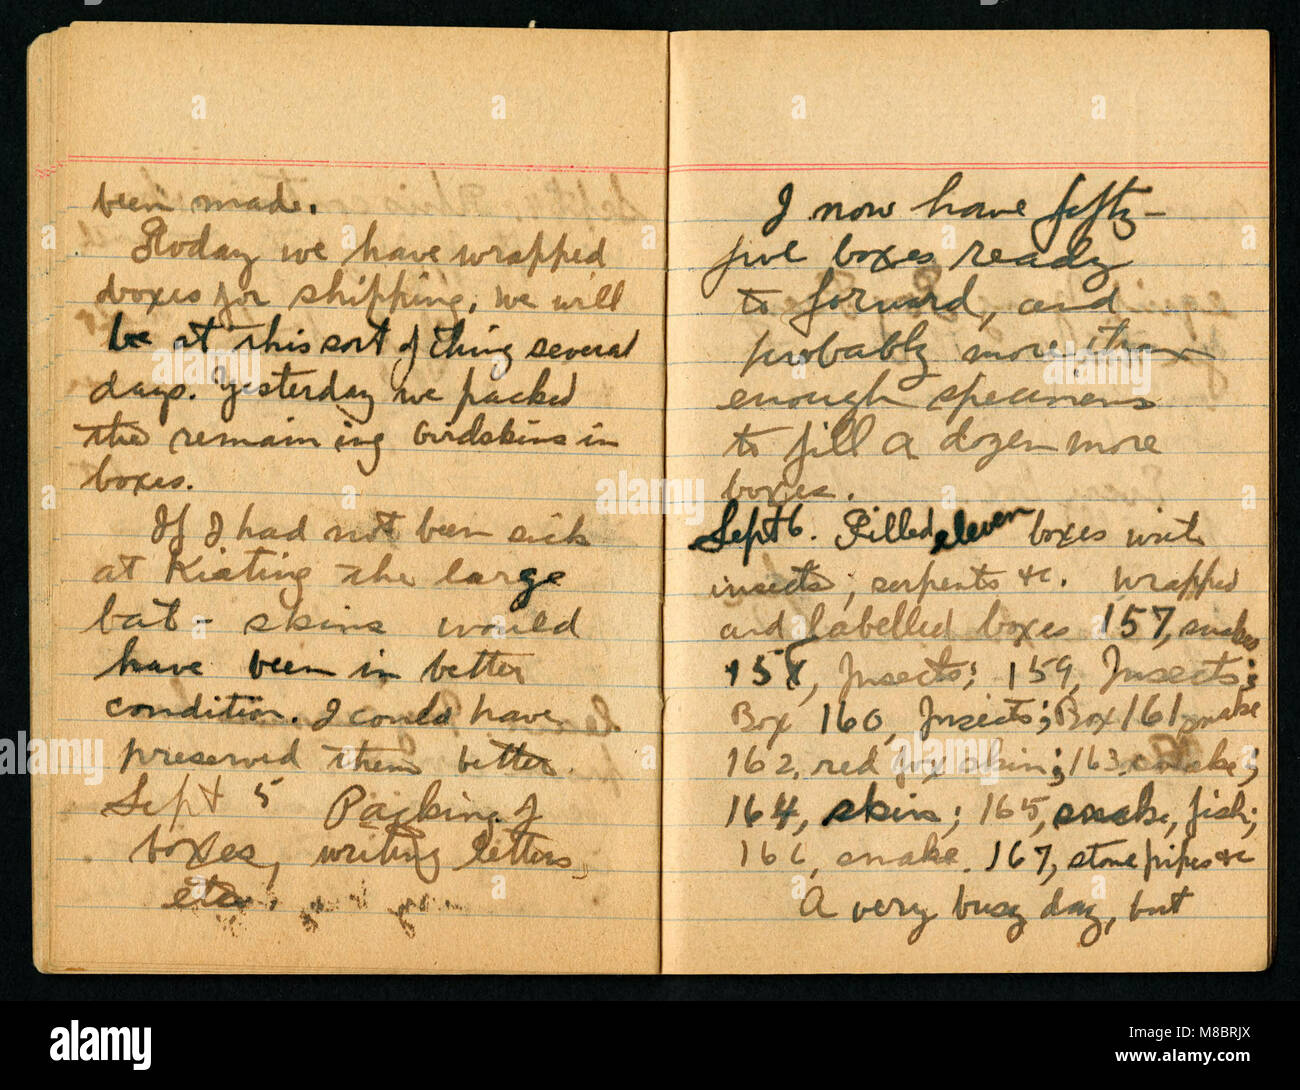 been made.
Today we have wrapped
boxes for shipping, we will
be at this sort of thing several
days. Yesterday we packed
the remaining birdskins in
boxes.
If I had not been sick
at Kiating the large
bat-skins would
have been in better
condition. I could have
preserved them better.
Sept 5 Packing of
boxes, writing letters,
etc.
I now have fifty-
five boxes ready
to forward, and
probably more than
enough specimens
to fill a dozen more
boxes.
Sept 6. Filled eleven boxes with
insects, serpents &c. Wrapped
and labelled boxes 157, snakes
158, Insects; 159, Insects;
Box 160, Insects; Box 161 snake
162, red fox skin; 163, snake;
164, skin; 165, snake, fish;
166, snake. 167, stone pipes &c
A very busy day, but
alamy
Image ID: M8BRJX
www.alamy.com